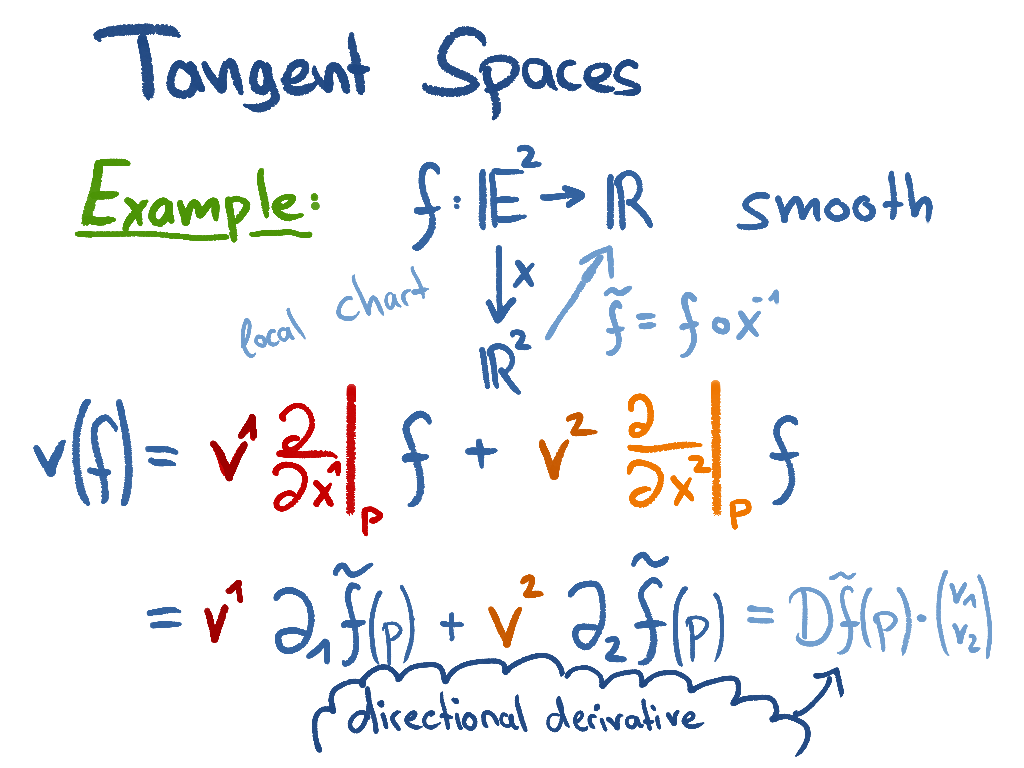 Tangent Spaces
Example: f : 𝔼² → ℝ smooth
x
local chart
f̃ = f ∘ x⁻¹
ℝ²
v(f) = v¹ ∂/∂x¹|ₚ f + v² ∂/∂x²|ₚ f
= v¹ ∂₁ f̃(p) + v² ∂₂ f̃(p) = Df̃(p) · (v₁ v₂)
directional derivative